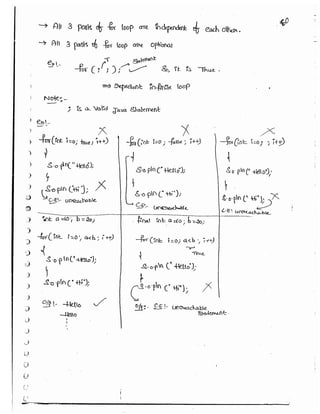 80
→ All 3 parts of for loop are independent of each other.
→ All 3 parts of for loop are optional
Ex:-
Statement
for ( ; ; ); So, it is True.
⇒ Represent infinite loop
Note:-
; is a valid Java Statement
Ex:-
for(int i=0; true; i++)
{
S.o.pln("Hello");
}
S.o.pln("Hi");
C.E:- unreachable
for(int i=0; false; i++)
{
S.o.pln("Hello");
}
S.o.pln("Hi");
C.E:- unreachable
for(int i=0; ; i++)
{
S.o.pln("Hello");
}
S.o.pln("Hi");
C.E: unreachable
int a=10, b=20;
for(int i=0; a<b; i++)
{
S.o.pln("Hello");
}
S.o.pln("Hi");
O/P:- Hello
Hello
final int a=10; b=20;
for(int i=0; a<b; i++)
{
True
S.o.pln("Hello");
}
S.o.pln("Hi");
O/P:- C.E:- unreachable
Statement.